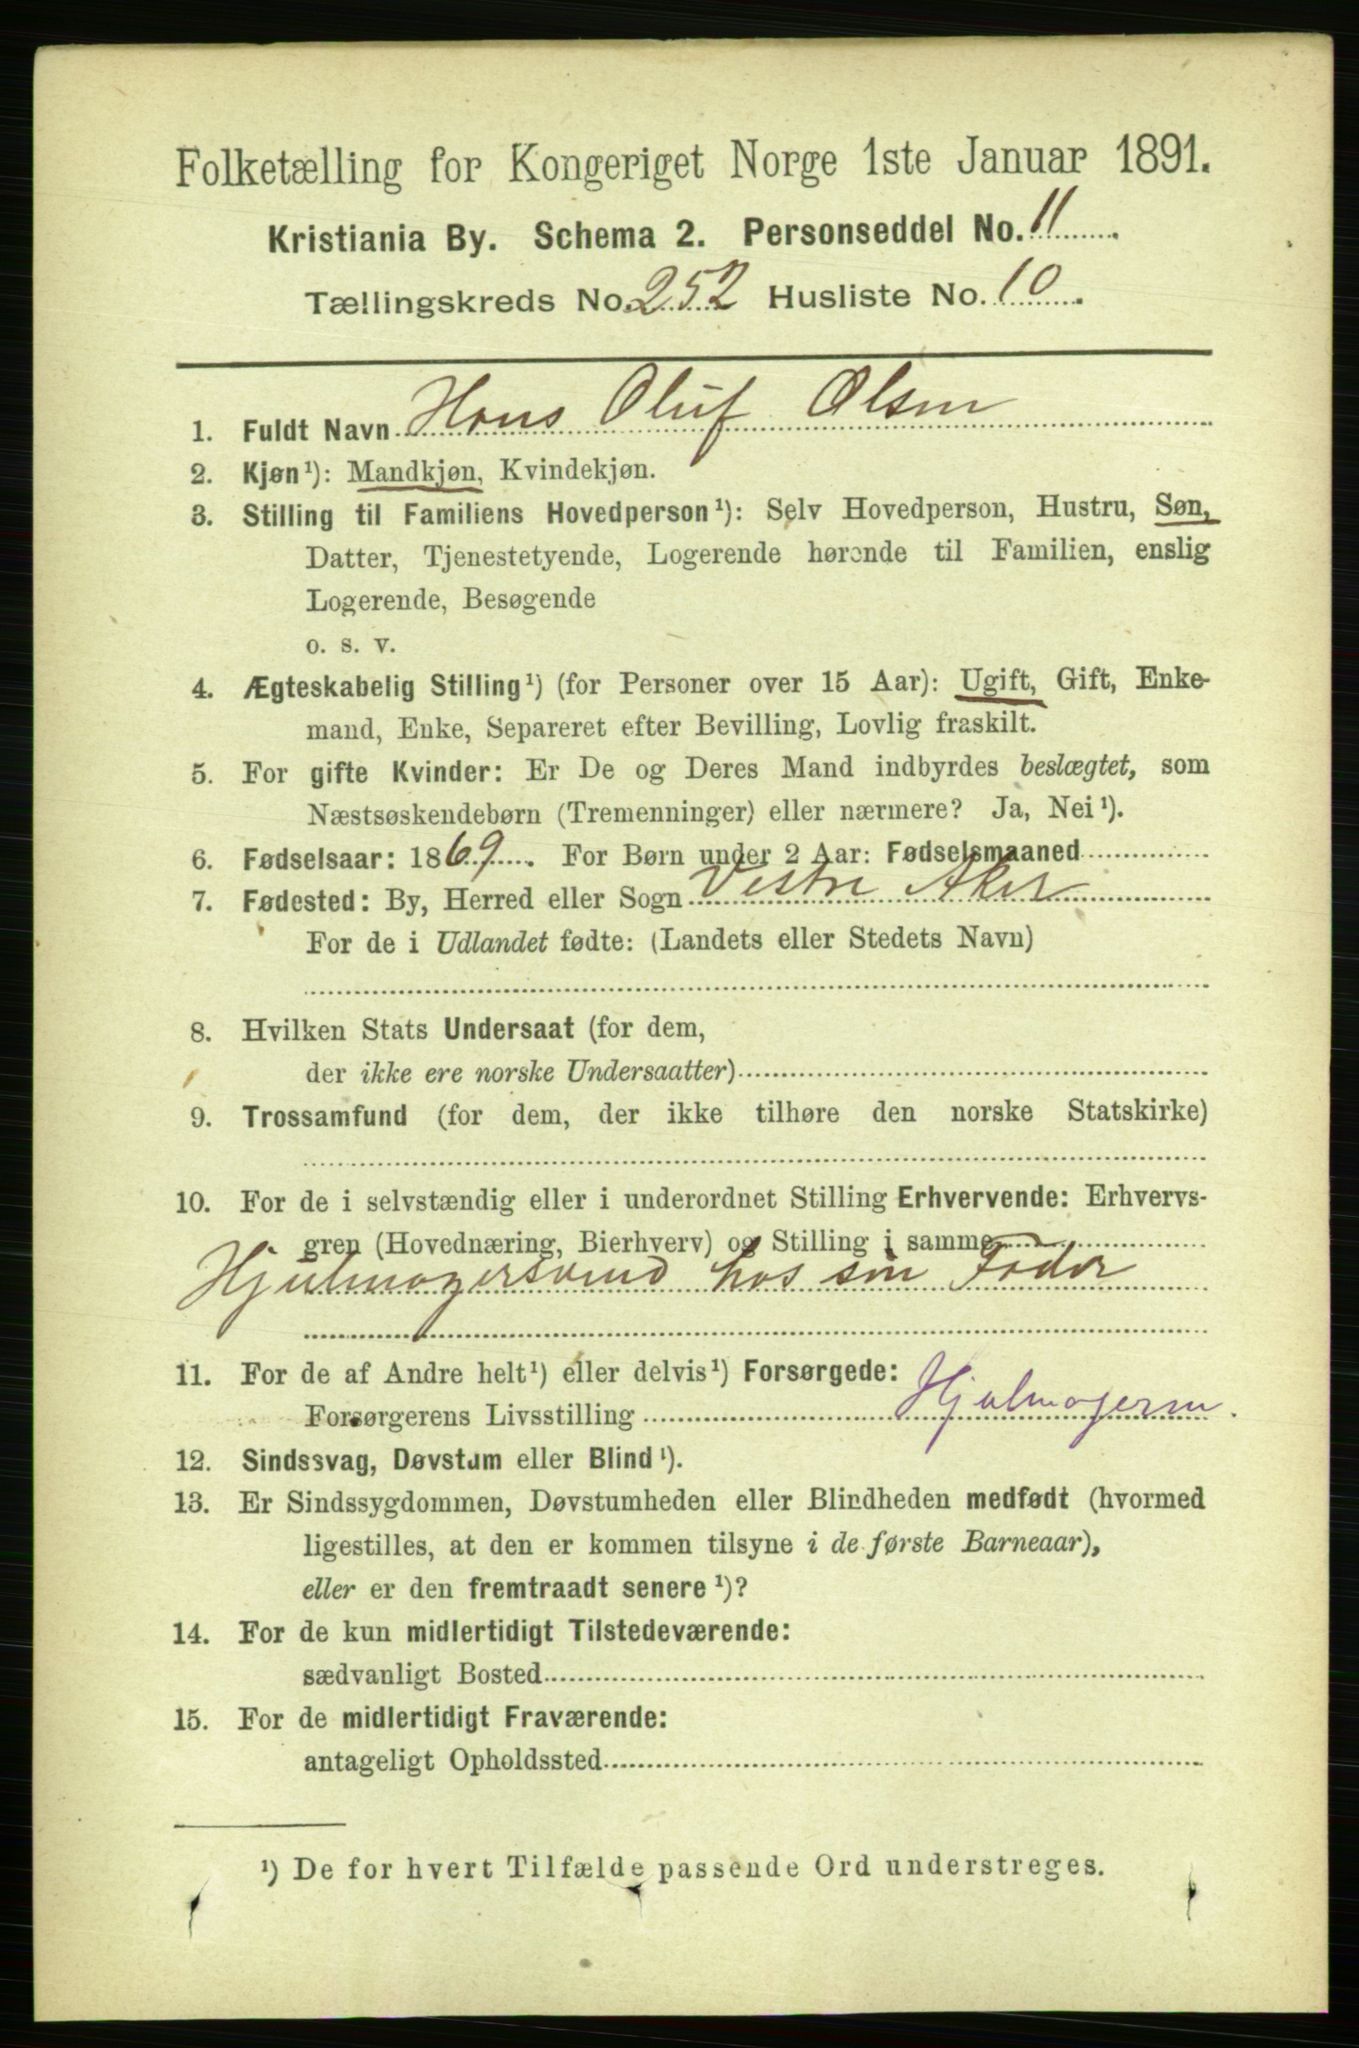 Folketælling for Kongeriget Norge 1ste Januar 1891.
Kristiania By. Schema 2. Personseddel No. 11
Tællingskreds No. 252 Husliste No. 10
1. Fuldt Navn Hans Oluf Olsen
2. Kjøn¹): Mandkjøn, Kvindekjøn.
3. Stilling til Familiens Hovedperson¹): Selv Hovedperson, Hustru, Søn,
Datter, Tjenestetyende, Logerende hørende til Familien, enslig
Logerende, Besøgende
o. s. v.
4. Ægteskabelig Stilling¹) (for Personer over 15 Aar): Ugift, Gift, Enke-
mand, Enke, Separeret efter Bevilling, Lovlig fraskilt.
5. For gifte Kvinder: Er De og Deres Mand indbyrdes beslægtet, som
Næstsøskendebørn (Tremenninger) eller nærmere? Ja, Nei¹).
6. Fødselsaar: 1869. For Børn under 2 Aar: Fødselsmaaned
7. Fødested: By, Herred eller Sogn Vestre Aker
For de i Udlandet fødte: (Landets eller Stedets Navn)
8. Hvilken Stats Undersaat (for dem,
der ikke ere norske Undersaatter)
9. Trossamfund (for dem, der ikke tilhøre den norske Statskirke)
10. For de i selvstændig eller i underordnet Stilling Erhvervende: Erhvervs-
gren (Hovednæring, Bierhverv) og Stilling i samme
Hjulmagersvend hos sin Fader
11. For de af Andre helt¹) eller delvis¹) Forsørgede:
Forsørgerens Livsstilling Hjulmagerm.
12. Sindssvag, Døvstum eller Blind¹).
13. Er Sindssygdommen, Døvstumheden eller Blindheden medfødt (hvormed
ligestilles, at den er kommen tilsyne i de første Barneaar),
eller er den fremtraadt senere¹)?
14. For de kun midlertidigt Tilstedeværende:
sædvanligt Bosted
15. For de midlertidigt Fraværende:
antageligt Opholdssted
¹) De for hvert Tilfælde passende Ord understreges.